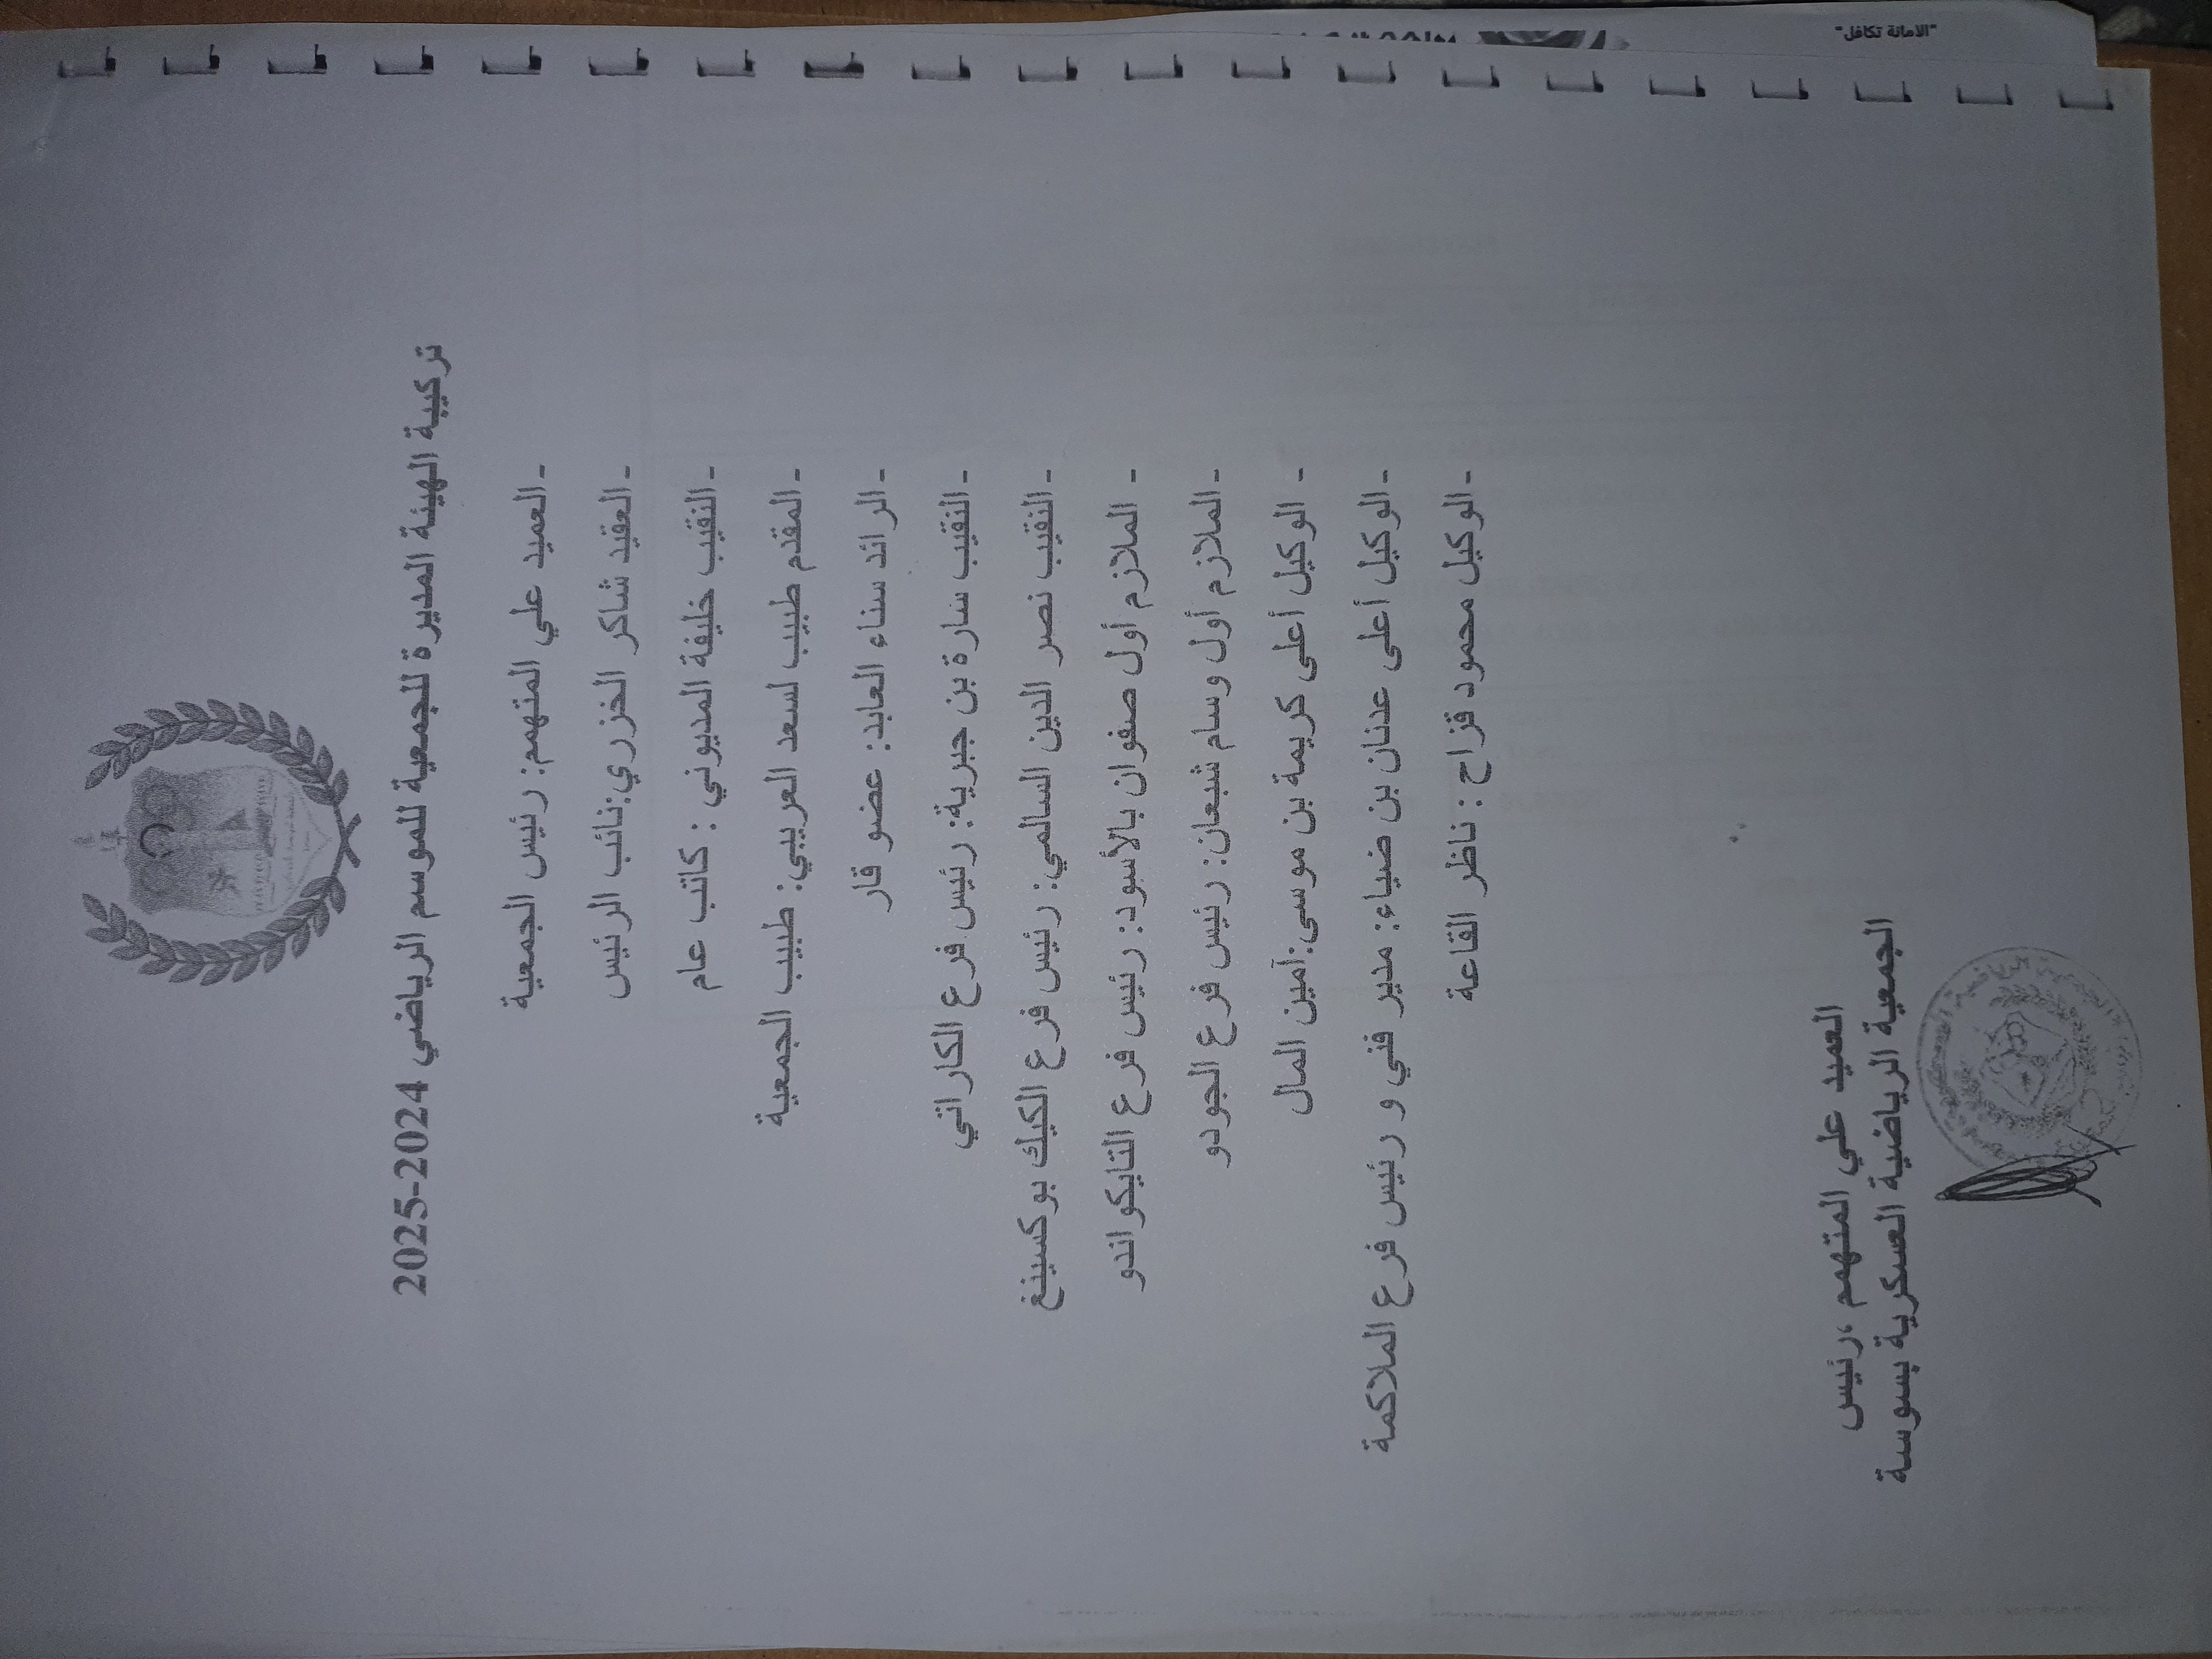 "الامانة تكافل"
تركيبة الهيئة المديرة للجمعية للموسم الرياضي 2024-2025
-العميد علي المتهمم: رئيس الجمعية
-العقيد شاكر الخزري:نائب الرئيس
-النقيب خليفة المديوني : كاتب عام
-المقدم طبيب لسعد العريبي: طبيب الجمعية
-الرائد سناء العابد: عضو قار
-النقيب سارة بن جبرية: رئيس فرع الكاراتي
-النقيب نصر الدين السالمي: رئيس فرع الكيك بوكسينغ
- الملازم أول صفوان بالأسود: رئيس فرع التايكواندو
-الملازم أول وسام شبعان: رئيس فرع الجودو
- الوكيل أعلى كريمة بن موسى:آمين المال
-الوكيل أعلى عدنان بن ضياء: مدير فني و رئيس فرع الملاكمة
-الوكيل محمود قزاح : ناظر القاعة
العميد علي المتهمم ،رئيس
الجمعية الرياضية العسكرية بسوسة